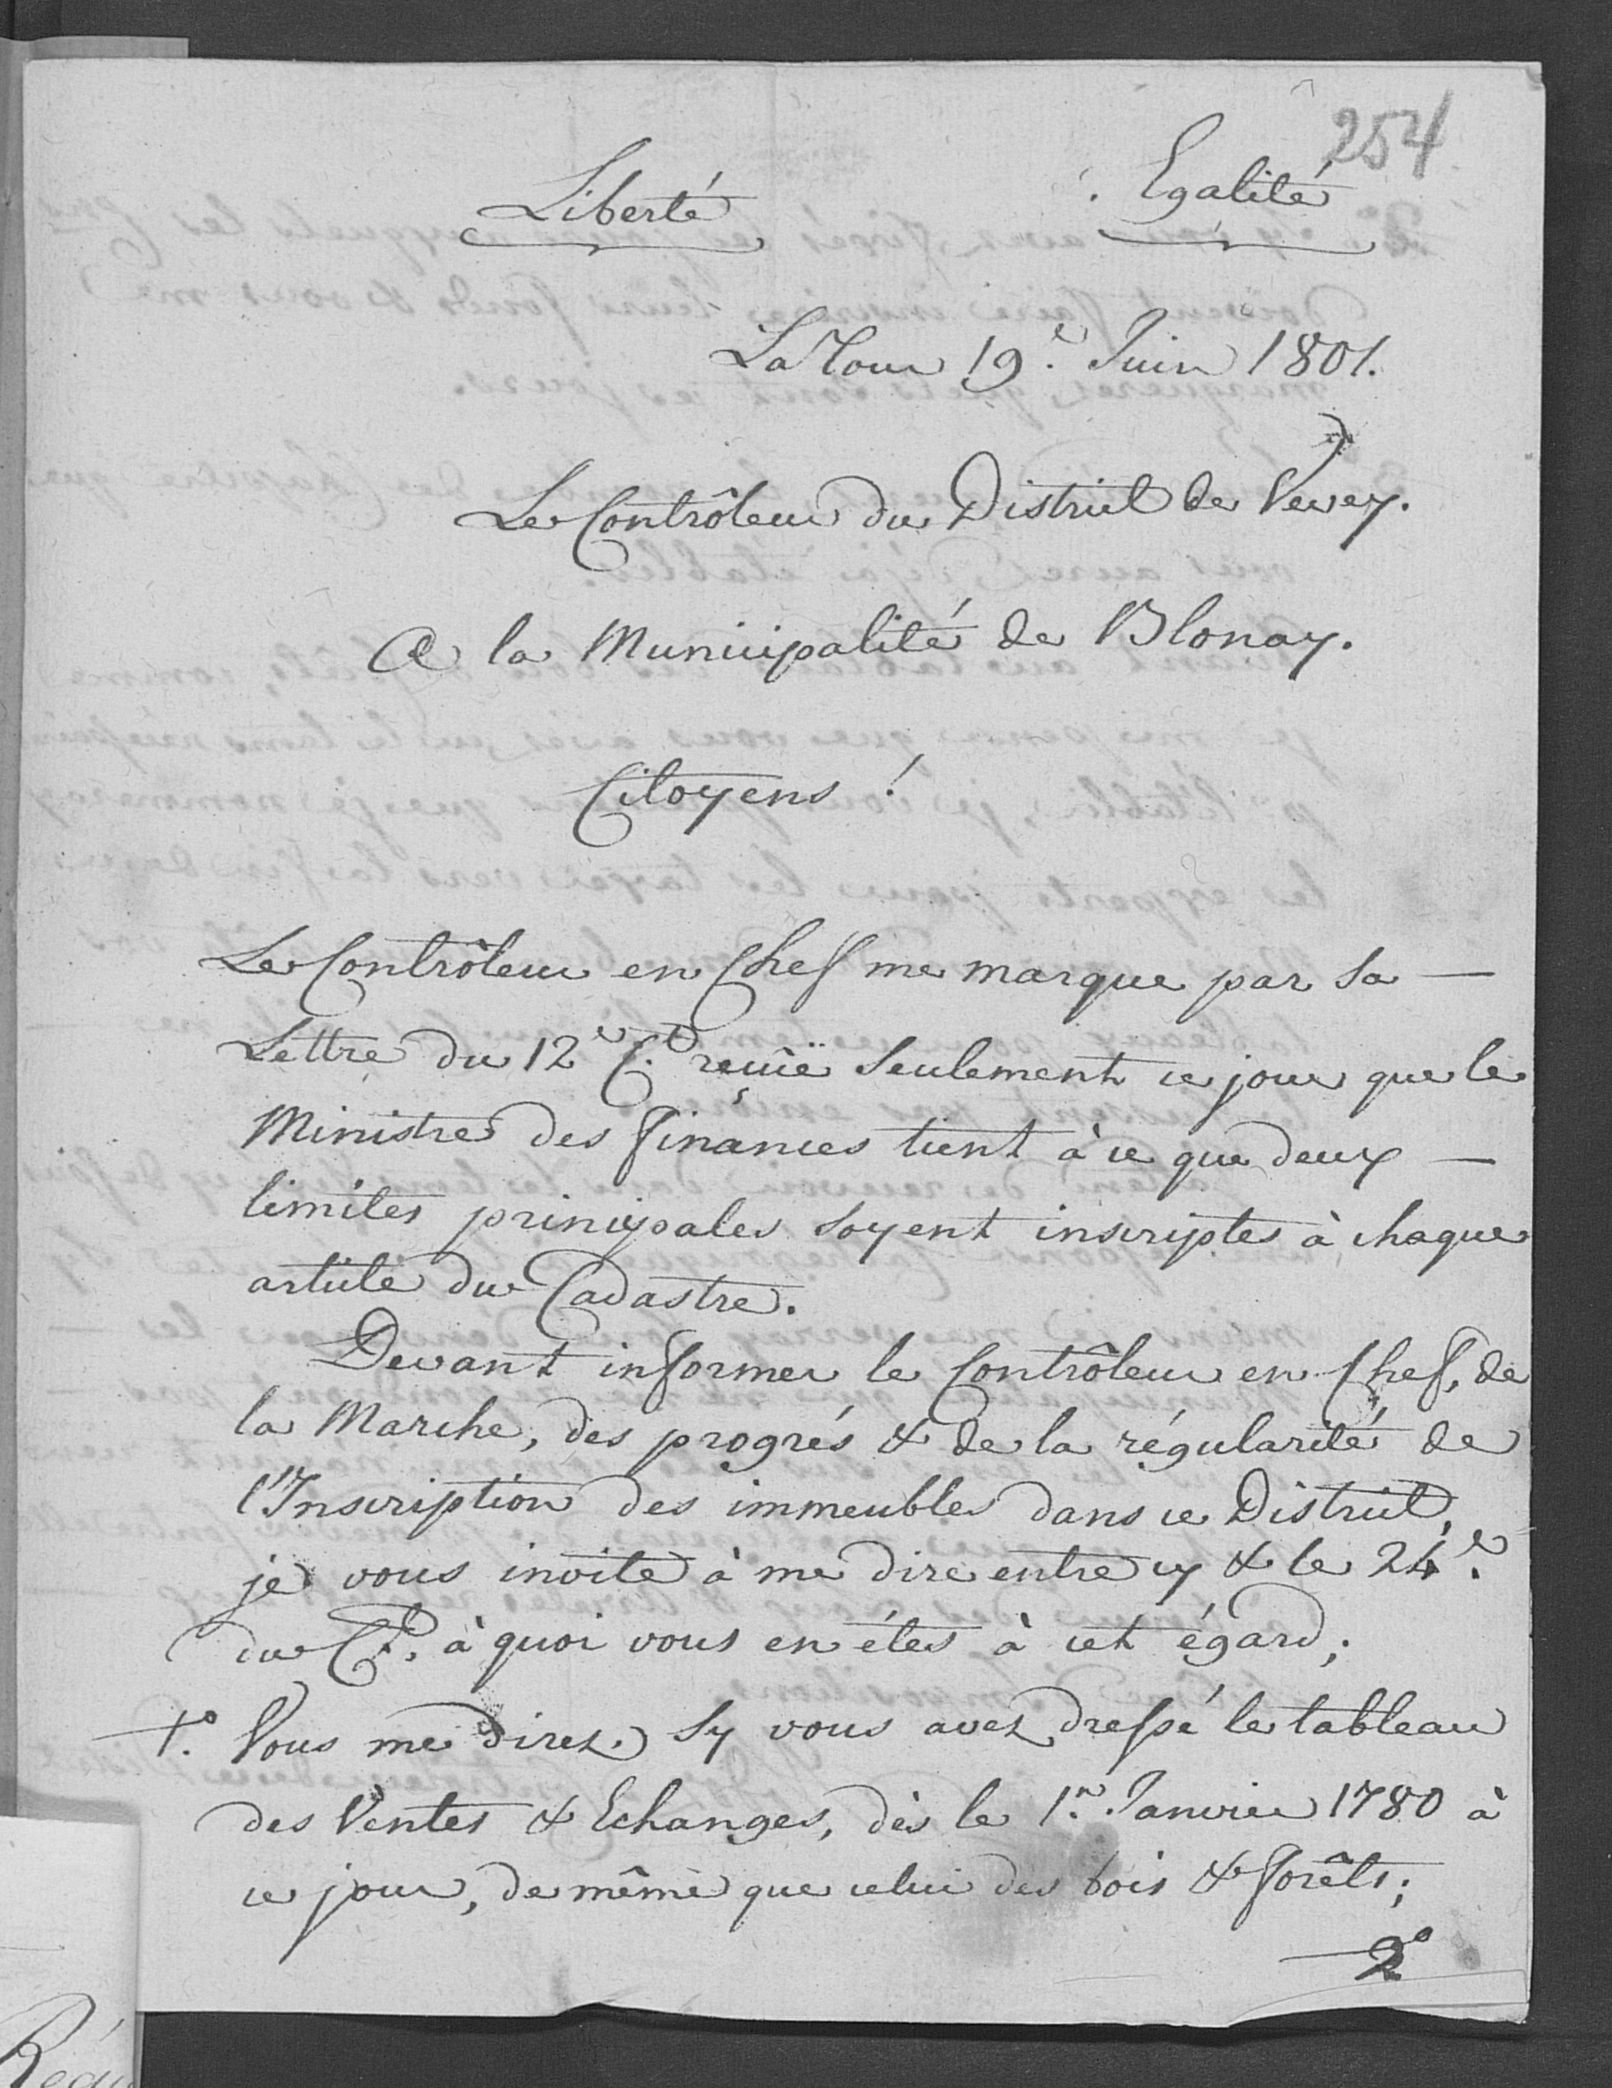 254
Liberté Egalité
La Tour 19.e Juin 1801.
Le Contrôleur du District de Vevey.
A la Municipalité de Blonay.
Citoyens !
Le Contrôleur en Chef me marque par sa —
Lettre du 12.e C.t reçüe seulement ce jour que le
Ministre des finances tient à ce que deux —
limites principales soyent inscriptes à chaque
article du Cadastre.
Devant informer le Contrôleur en Chef, de
la Marche, des progrés & de la régularité de
l'Inscription des immeubles dans ce District,
je vous invite à me dire entre cy & le 24.e
du C.t à quoi vous en étes à cet égard;
1.o Vous me direz sy vous avez dressé le tableau
des Ventes & Echanges, dès le 1.er Janvier 1780 à
ce jour, de même que celui des bois & forêts;
2.o